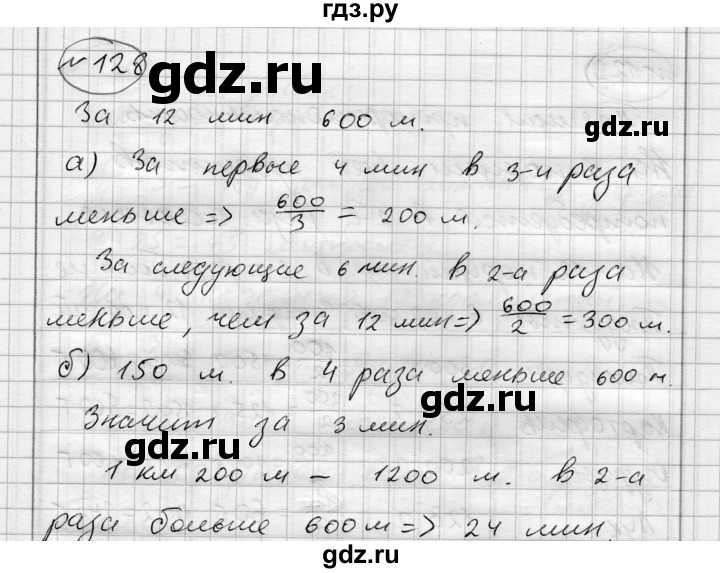 гдз.ру
№128
gdz.ru
За 12 мин 600 м.
gdz.ru
а) За первые 4 мин в 3-и раза
меньше => 600/3 = 200 м.
gdz.ru
За следующие 6 мин. в 2-а раза
меньше, чем за 12 мин => 600/2 = 300 м.
gdz.ru
б) 150 м. в 4 раза меньше 600 м.
gdz.ru
Значит за 3 мин.
gdz.ru
1 км 200 м – 1200 м. в 2-а
раза больше 600 м => 24 мин.
gdz.ru
gdz.ru